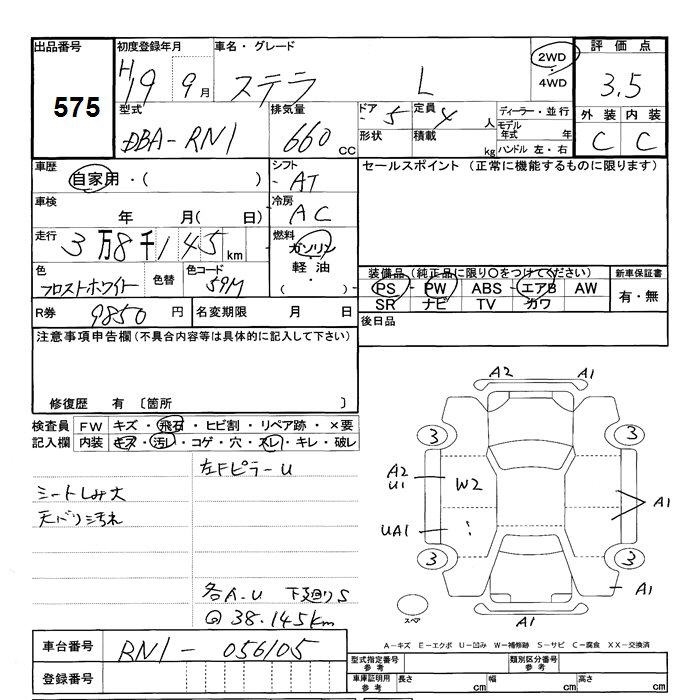 出品番号 初度登録年月 車名・グレード 評価点
575 H19 9月 ステラ L 2WD・4WD 3.5
型式 排気量 ドア 5 定員 4人 ディーラー・並行 外装 内装
DBA-RN1 660cc 形状 積載 kg モデル年式 年 C C
ハンドル 左・右
車歴 自家用・( ) シフト AT セールスポイント(正常に機能するものに限ります)
車検 年 月( 日) 冷房 AC
走行 3万8千145km 燃料 ガソリン
軽油
・( )
色 フロストホワイト 色替 色コード 59M
装備品(純正品に限り○をつけてください) 新車保証書
PS・PW・ABS・エアB・AW 有・無
SR ナビ TV カワ
R券 9850円 名変期限 月 日 後日品
注意事項申告欄(不具合内容等は具体的に記入して下さい)
修復歴 有 〔箇所
検査員記入欄 FW キズ・飛石・ヒビ割・リペア跡・×要
内装 キズ・汚レ・コゲ・穴・スレ・キレ・破レ
左FピラーU
シートしみ大
天バリ汚れ
各A.U 下廻りS
@38.145km
A2 A1
3 3
A2
U1 W2 A1
UA1
3 3
A1
スペア A1
A-キズ E-エクボ U-凹み W-補修跡 S-サビ C-腐食 XX-交換済
車台番号 RN1-056105 型式指定番号 参考 類別区分番号 参考
登録番号 車庫証明用 参考 長さ cm 幅 cm 高さ cm